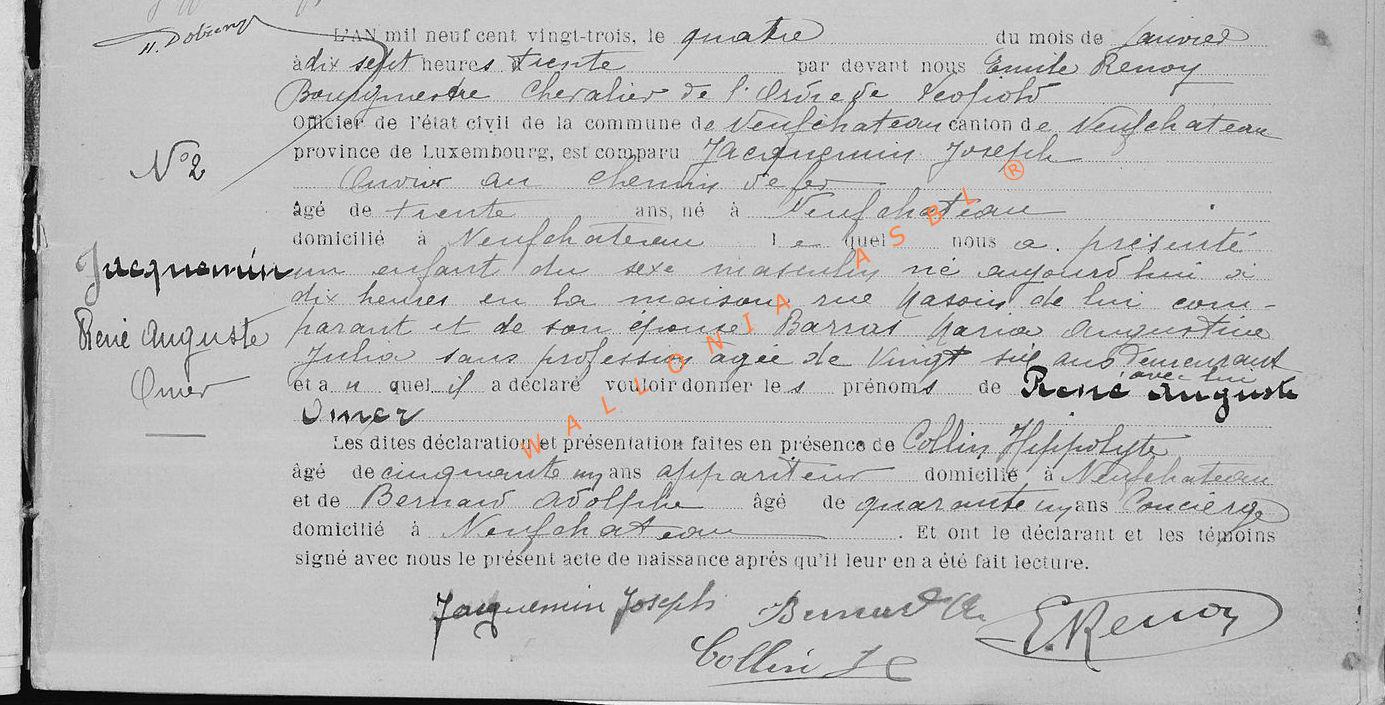 H. Dobrenz
L'AN mil neuf cent vingt-trois, le quatre du mois de Janvier
à dix sept heures trente par devant nous Emile Renoy
Bourgmestre Chevalier de l'Ordre de Léopold
Officier de l'état civil de la commune de Neufchateau canton de Neufchateau
province de Luxembourg, est comparu Jacquemin Joseph
Ouvrier au chemin de fer
âgé de trente ans, né à Neufchateau
domicilié à Neufchateau lequel nous a présenté
un enfant du sexe masculin né aujourd'hui à
dix heures en la maison rue de lui com-
parant et de son épouse Barras Maria Augustine
Julia sans profession agée de vingt six ans demeurant
avec lui
et au quel il a déclaré vouloir donner les prénoms de René Auguste
Omer
Les dites déclaration et présentation faites en présence de Collin Hippolyte
âgé de cinquante un ans appariteur domicilié à Neufchateau
et de Bernard Adolphe âgé de quarante un ans Concierge
domicilié à Neufchateau. Et ont le déclarant et les témoins
signé avec nous le présent acte de naissance après qu'il leur en a été fait lecture.
Jacquemin Joseph Bernard A. E. Renoy
Collin H
N° 2
Jacquemin
René Auguste
Omer
WALLONIA ASBL ®